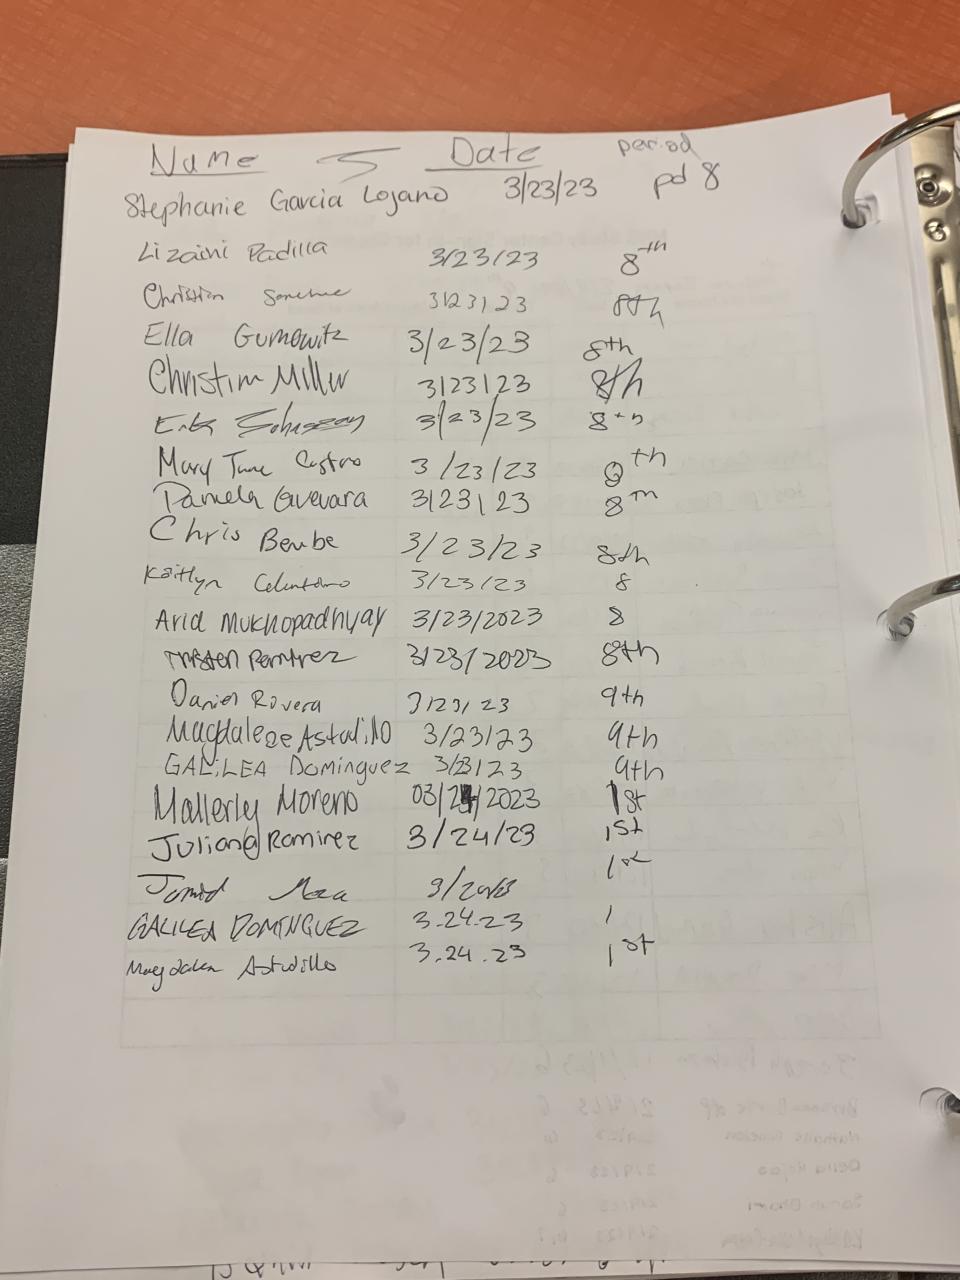 Name Date period
Stephanie Garcia Lozano 3/23/23 pd 8
Lizaini Padilla 3/23/23 8th
Christian 3/23/23 8th
Ella Gumowitz 3/23/23 8th
Christian Miller 3/23/23 8th
Erik 3/23/23 8th
Mary Jane Castro 3/23/23 8th
Daniela Guevara 3/23/23 8th
Chris Berube 3/23/23 8th
Kaitlyn Celentano 3/23/23 8
Arid Mukhopadhyay 3/23/2023 8
Tristen Ramirez 3/23/2023 8th
Daniel Rovera 3/23/23 9th
Magdalene Astudillo 3/23/23 9th
GALILEA Dominguez 3/23/23 9th
Mallerly Moreno 03/24/2023 1st
Juliana Ramirez 3/24/23 1st
1st
GALILEA DOMINGUEZ 3.24.23 1
Magdalen Astudillo 3.24.23 1st